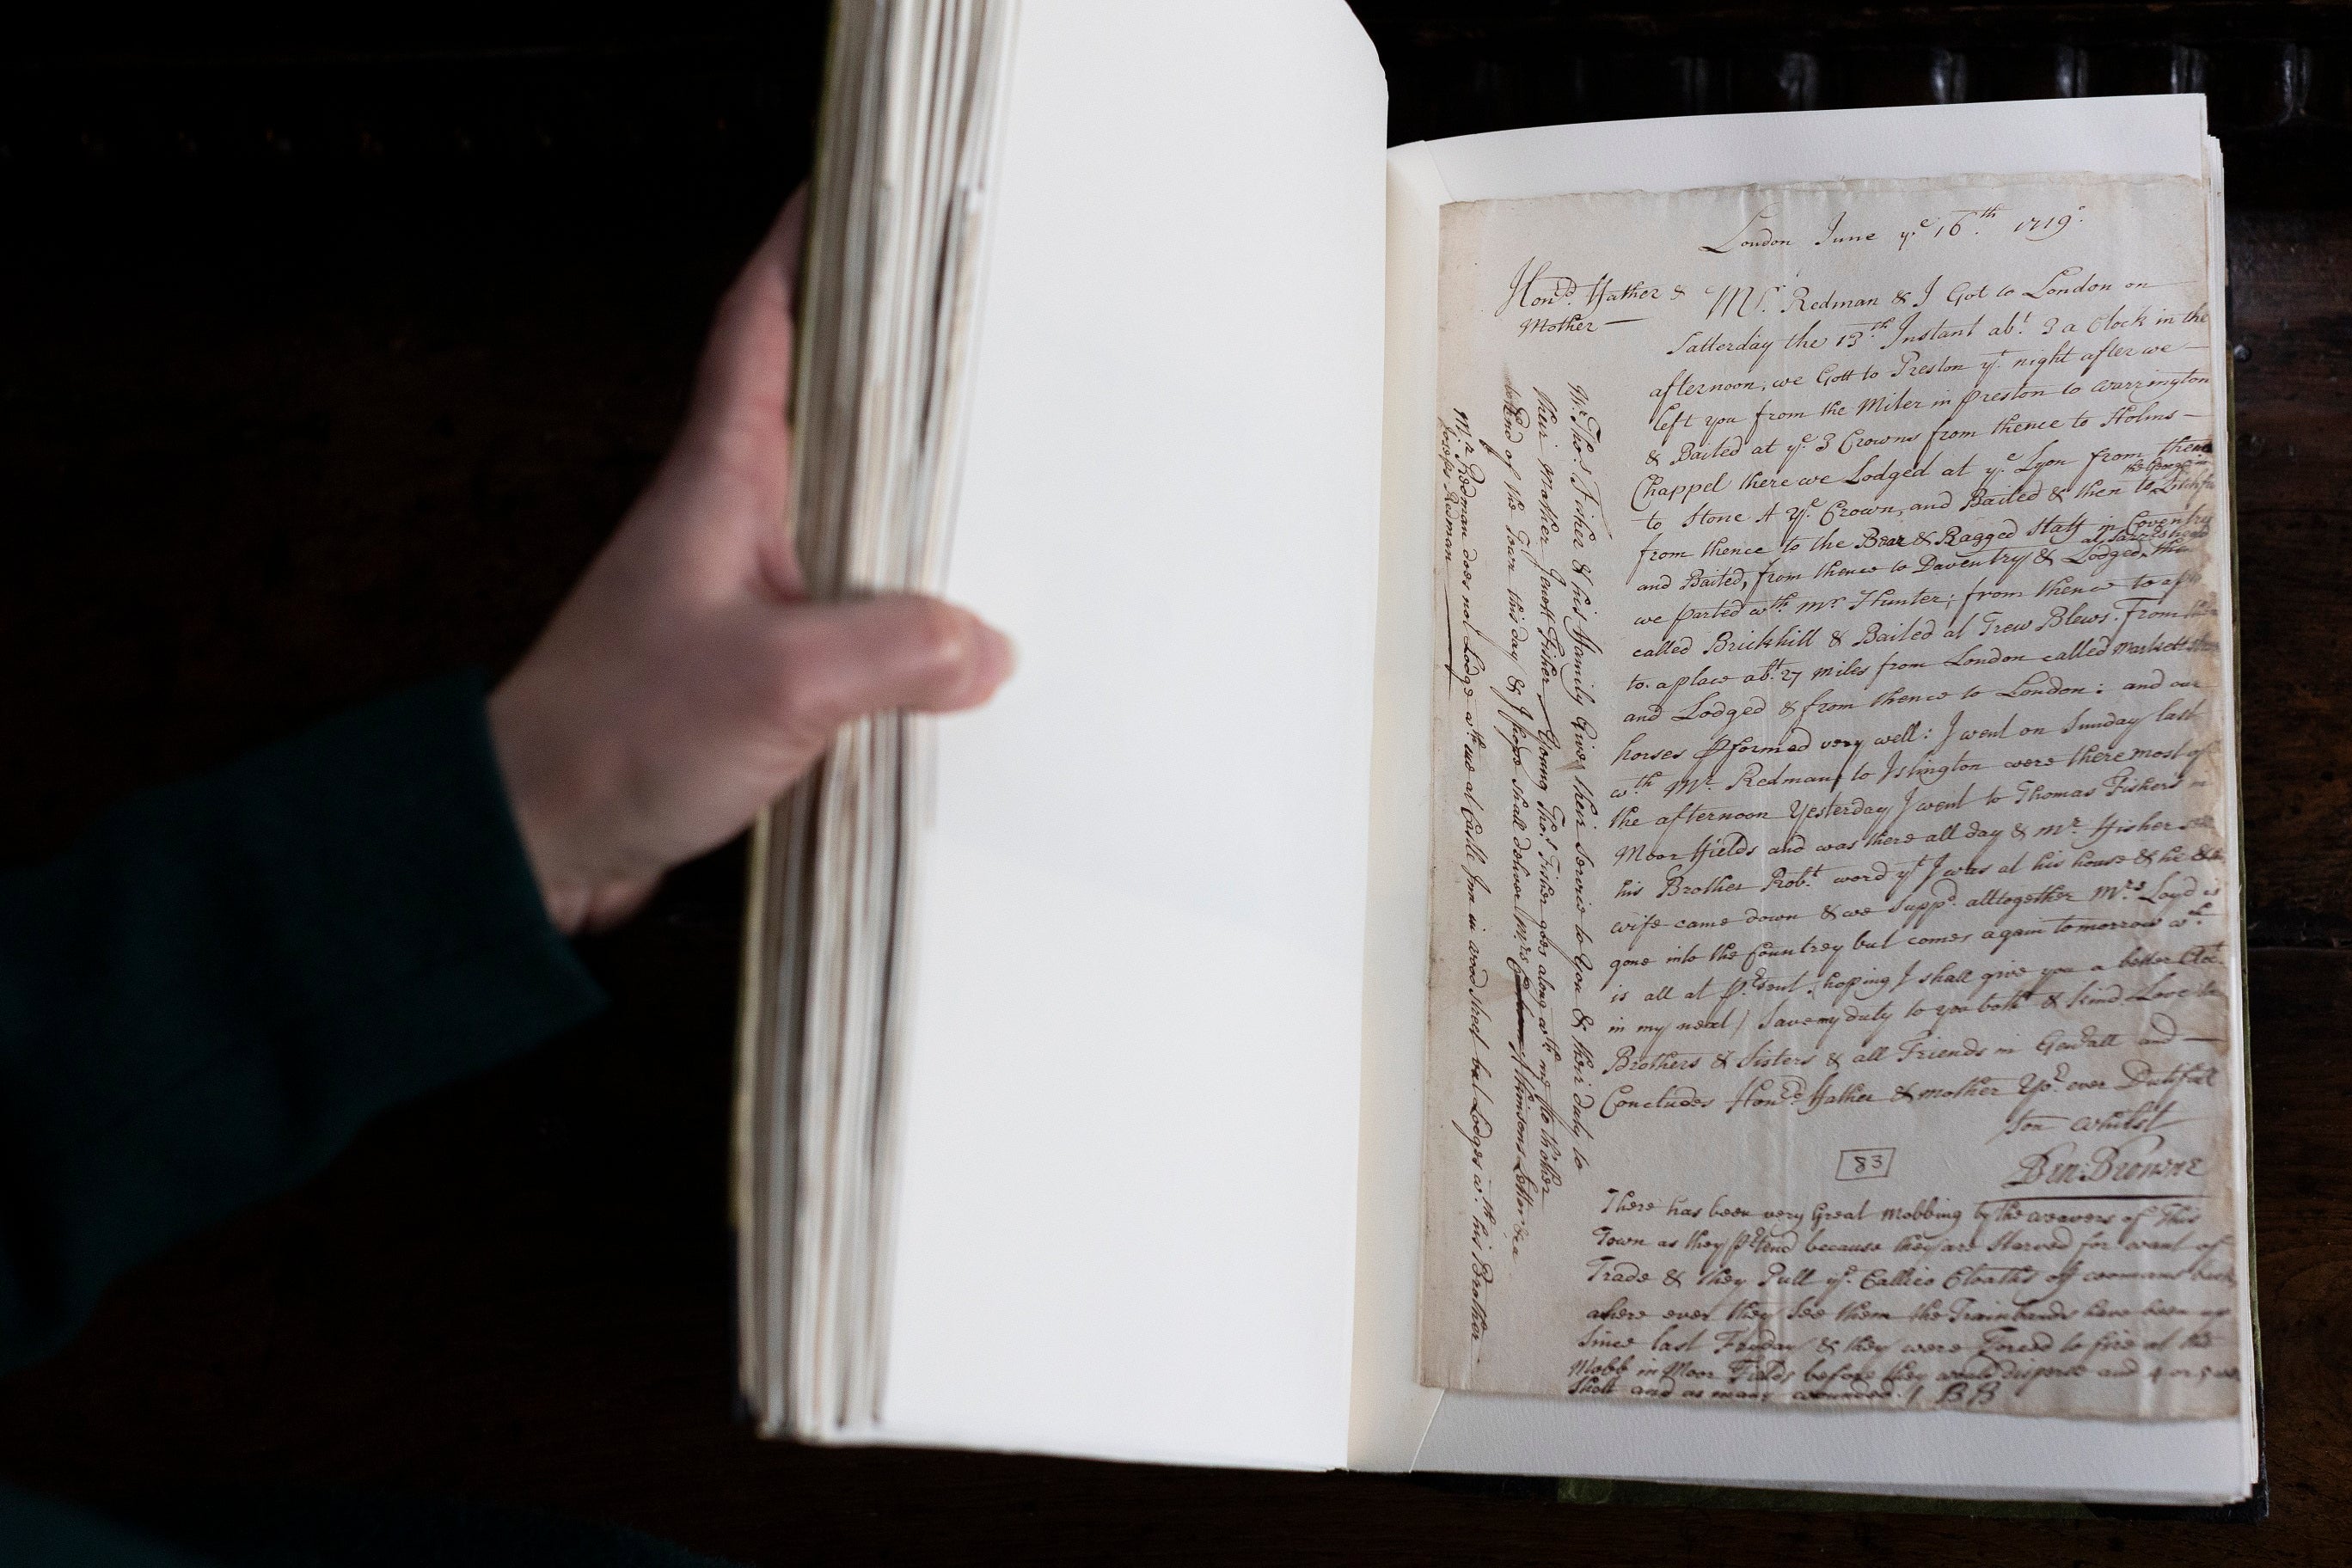 London June yᵉ 16ᵗʰ 1719
Honᵈ Father & Mʳ Redman & I Got to London on
Mother —
Satterday the 13ᵗʰ Instant abᵗ 3 a Clock in the
afternoon, we Gott to Preston yᵗ night after we —
left you from the Miter in preston to warrington
& Baited at yᵉ 3 Crowns from thence to Holms —
Chappel there we Lodged at yᵉ Lyon from thence
to Stone At yᵉ Crown, and Baited & then to the George in
from thence to the Bear & Ragged Staff in Coventry
and Baited, from thence to Daventry & Lodged, then
we parted wᵗʰ Mʳ Hunter; from thence to a
called Brickhill & Baited at Trew Blews: From
to a place abᵗ 27 miles from London called Markett
and Lodged & from thence to London: and our
horses pformed very well: I went on Sunday last
wᵗʰ Mʳ Redman to Islington were there most of
the afternoon Yesterday I went to Thomas Fishers in
Moor ffields and was there all day & Mʳ ffisher
his Brother Robᵗ word yᵗ I was at his house & he &
wife came down & we Suppᵈ alltogether Mʳˢ Loyd is
gone into the Countrey but comes again tomorrow wᶜʰ
is all at pʳsent, hoping I shall give you a better Accᵗ
in my next / Save my duty to you both & kind Love to
Brothers & Sisters & all Friends in Genˡall and —
Concludes Honᵈ ffather & mother Yoʳ ever Dutifull
Son whilst
83
Ben: Browne
There has been very Great Mobbing by the weavers of this
Town as they pʳtend because they are starved for want of
Trade & they Pull yᵉ Callico Cloaths off womans back
where ever they See them the Trainbands have been up
Since last Fryday & they were Forced to fire at the
Mobb in Moor Fields before they would disperse and 4 or 5
Shott and as many wounded. / BB
Mʳ Thoˢ Fisher & his ffamily Gives their Service to You & their duty to
their Mother Jenett Fisher — Young Thoˢ Fisher goes along wᵗʰ me to th'other
End of the Town this day & I hope shall deliver Mʳˢ Letter
Mʳ Redman does not Lodge wᵗʰ me at Castle Inn in wood street but Lodges wᵗʰ his Brother
Joseph Redman —